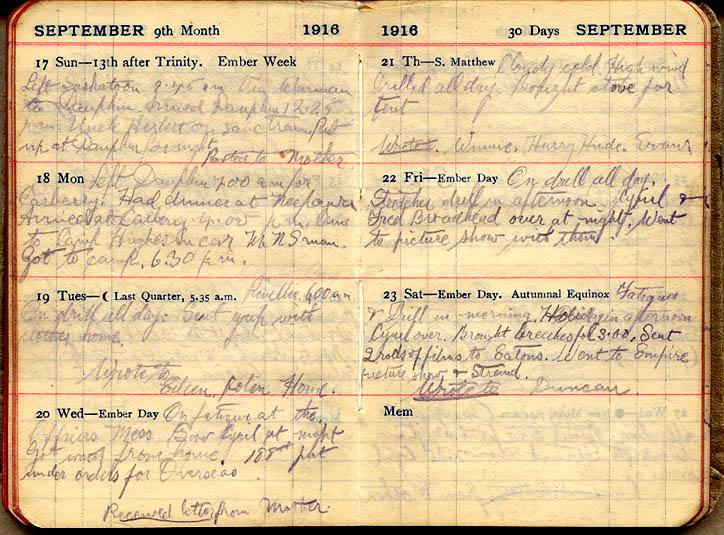 SEPTEMBER 9th Month 1916
17 Sun—13th after Trinity. Ember Week
Left Saskatoon 9.45 am
to Dauphin Arrived Dauphin 12.25
Uncle Herbert on same train Put
up at Dauphin for night
Mother
18 Mon Left Dauphin 700 am for
Carberry. Had dinner at Neepawa
Arrived at Carberry 4.00 p.m. Came
to Camp Hughes in car
Got to camp. 6.30 p.m.
19 Tues—☾ Last Quarter, 5.35 a.m. Reveille, 6.00 am
On drill all day. Sent grip with
clothes home.
Wrote to
Eileen, Home.
20 Wed—Ember Day On fatigue at the
Officers Mess. Cyril at night
Got from home. 188th put
under orders for Overseas.
Received letter from Mother.
1916 30 Days SEPTEMBER
21 Th—S. Matthew Cloudy cold. High wind
Drilled all day. Bought stove for
tent
Wrote. Winnie, Harry Hinde. Evans
22 Fri—Ember Day On drill all day.
drill in afternoon. Cyril &
Fred Broadhead over at night. Went
to picture show with them.
23 Sat—Ember Day. Autumnal Equinox Fatigues
& Drill in morning. Holiday in afternoon
Cyril over. Bought breeches for 3.00. Sent
2 rolls of films to Eatons. Went to Empire
picture show & Strand.
Wrote to Duncan.
Mem